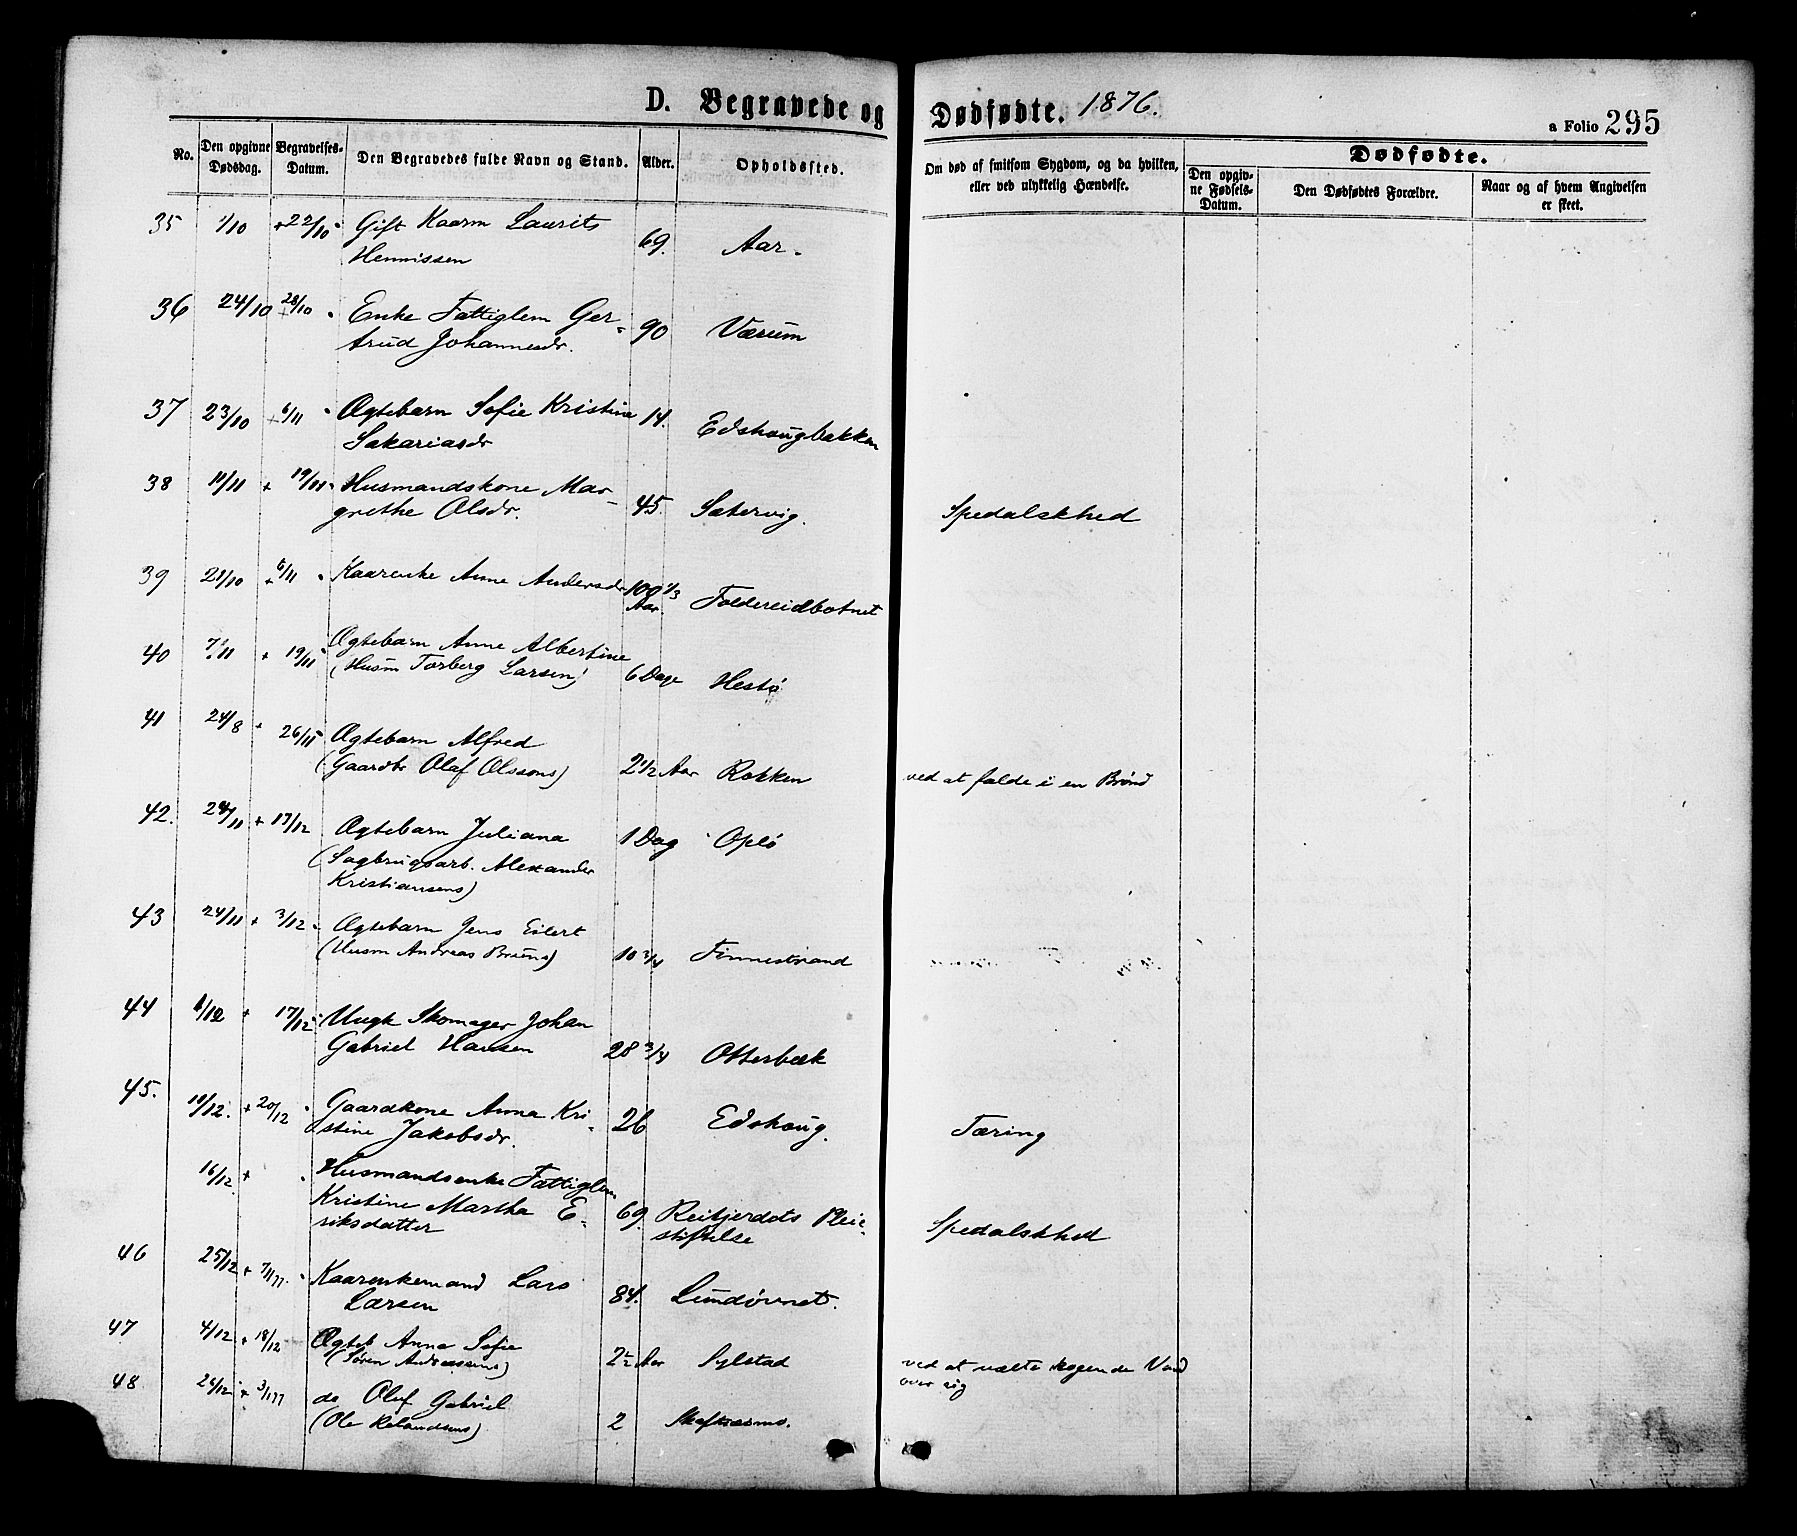 D. Begravede og Dødfødte. 1876.
a Folio 295
No.
Den opgivne Dødsdag.
Begravelses-Datum.
Den Begravedes fulde Navn og Stand.
Alder.
Opholdssted.
Om død af smitsom Sygdom, og da hvilken, eller ved ulykkelig Hændelse.
Dødfødte.
Den opgivne Fødsels-Datum.
Den Dødfødtes Forældre.
Naar og af hvem Angivelsen er skeet.
35 1/10 + 22/10 Gift Kaarm Laurits
Hennissen 69. Aar.
36 24/10 + 28/10 Enke Fattiglem Ger-
trud Johannesdr. 90 Værum
37 23/10 + 6/11 Ægtebarn Sofie Kristine 14. Edshougbakken
Sakariasdr
38 11/11 + 19/11 Husmandskone Mar-
grethe Olsdr. 45. Satervig. Spedalskhed
39 21/10 + 6/11 Kaarenke Anne Andersdr 100 1/3
Aar. Foldereidbotnet
40 7/11 + 19/11 Ægtebarn Anne Albertine
(Husm Torberg Larsen) 6 Dage Hestø
41 24/8 + 26/11 Ægtebarn Alfred
(Gaardbr Olaf Olssons) 2 1/2 Aar Rokken ved at falde i en Brønd
42. 24/11 + 17/12 Ægtebarn Juliana 1 Dag Oplø
(Sagbrugsarb. Alexander
Kristiansens)
43 24/11 + 3/12 Ægtebarn Jens Eilert
(Husm Andreas Bruuns) 10 3/4 Finnestrand
44 6/12 + 17/12 Ungk Skomager Johan
Gabriel Hansen 28 3/4 Otterbæk
45. 10/12. + 20/12 Gaardkone Anna Kri-
stine Jakobsdr. 26 Edshoug. Tæring
16/12. + Husmandsenke Fattiglem
Kristine Martha E- 69. Reitjerdets Pleie-
riksdatter stiftelse Spedalskhed
46 25/12 + 7/1 77. Kaarenkemand Lars
Larsen 84. Lundørnet.
47 4/12 + 18/12 Ægteb Anna Sofie
(Søren Andreassens) 2 1/2 Aar Sylstad ved at vælte kogende Vand
over sig
48 26/12 + 3/1 77 do Oluf Gabriel
(Ole Relandsens) 2